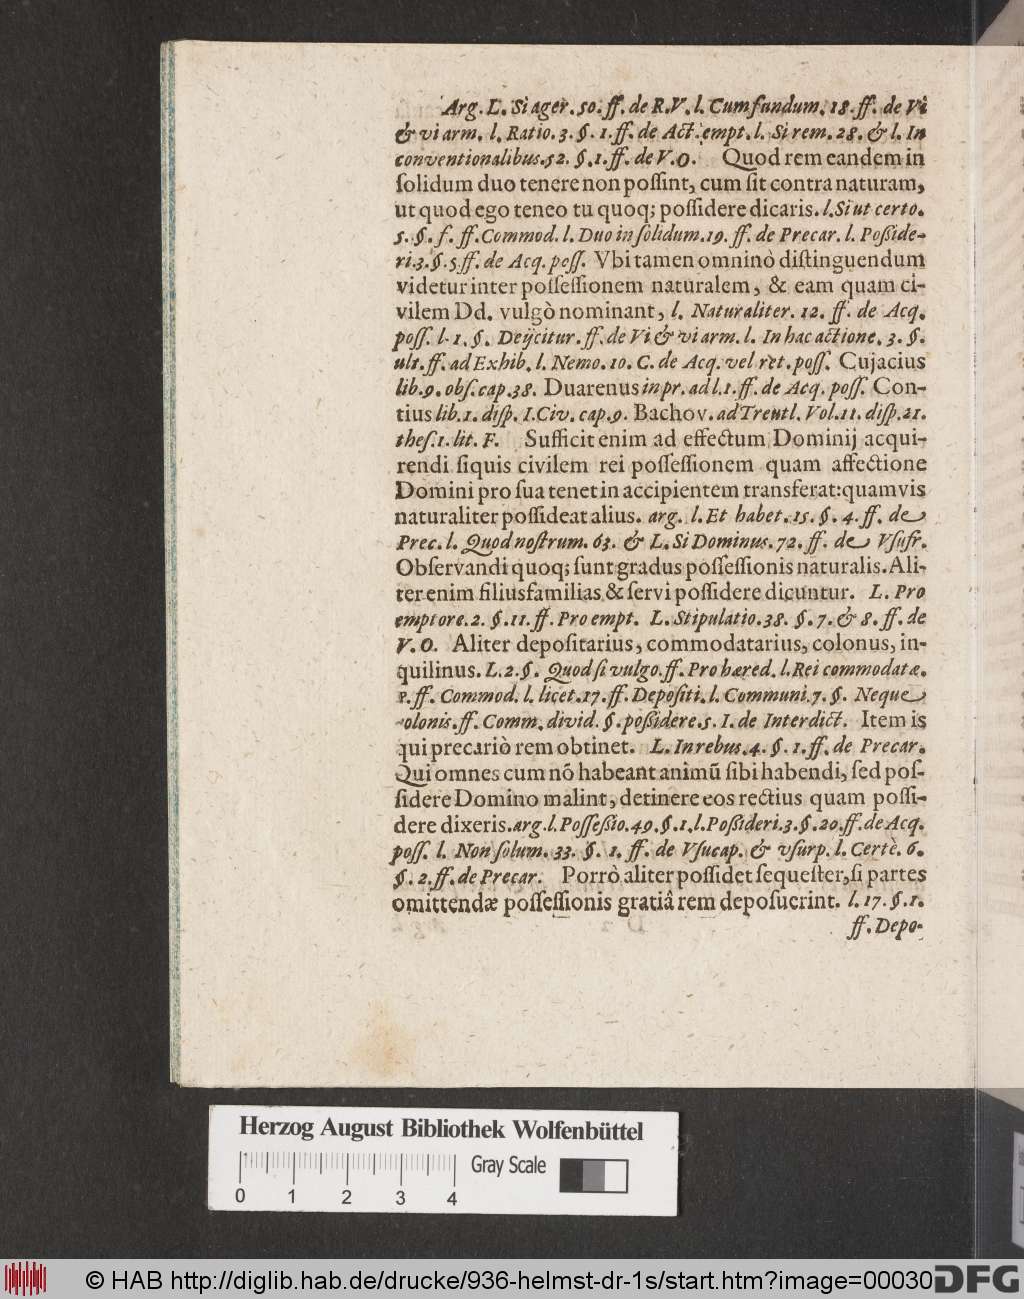 Arg. L. Si ager. 50. ff. de R. V. l. Cum fundum. 18. ff. de Vi
& vi arm. l. Ratio. 3. §. 1. ff. de Act. empt. l. Si rem. 28. & l. In
conventionalibus. 52. §. 1. ff. de V. O. Quod rem eandem in
ſolidum duo tenere non poſſint, cum ſit contra naturam,
ut quod ego teneo tu quoq; poſſidere dicaris. l. Si ut certo.
5. §. f. ff. Commod. l. Duo in ſolidum. 19. ff. de Precar. l. Poßide-
ri. 3. §. 5. ff. de Acq. poſſ. Vbi tamen omninò diſtinguendum
videtur inter poſſeſſionem naturalem, & eam quam ci-
vilem Dd. vulgò nominant, l. Naturaliter. 12. ff. de Acq.
poſſ. l. 1. §. Deijcitur. ff. de Vi & vi arm. l. In hac actione. 3. §.
ult. ff. ad Exhib. l. Nemo. 10. C. de Acq. vel ret. poſſ. Cujacius
lib. 9. obſ. cap. 38. Duarenus in pr. ad l. 1. ff. de Acq. poſſ. Con-
tius lib. 1. diſp. I. Civ. cap. 9. Bachov. ad Treutl. Vol. 11. diſp. 21.
theſ. 1. lit. F. Sufficit enim ad effectum Dominij acqui-
rendi ſiquis civilem rei poſſeſſionem quam affectione
Domini pro ſua tenet in accipientem transferat: quamvis
naturaliter poſſideat alius. arg. l. Et habet. 15. §. 4. ff. de
Prec. l. Quod noſtrum. 63. & L. Si Dominus. 72. ff. de Vſufr.
Obſervandi quoq; ſunt gradus poſſeſſionis naturalis. Ali-
ter enim filiusfamilias & ſervi poſſidere dicuntur. L. Pro
emptore. 2. §. 11. ff. Pro empt. L. Stipulatio. 38. §. 7. & 8. ff. de
V. O. Aliter depoſitarius, commodatarius, colonus, in-
quilinus. L. 2. §. Quod ſi vulgo. ff. Pro hæred. l. Rei commodatæ.
ff. Commod. l. licet. 17. ff. Depoſiti. l. Communi. 7. §. Neque
olonis. ff. Comm. divid. §. poßidere. 5. I. de Interdict. Item is
qui precariò rem obtinet. L. In rebus. 4. §. 1. ff. de Precar.
Qui omnes cum nõ habeant animũ ſibi habendi, ſed poſ-
ſidere Domino malint, detinere eos rectius quam poſſi-
dere dixeris. arg. l. Poſſeßio. 49. §. 1. l. Poßideri. 3. §. 20. ff. de Acq.
poſſ. l. Non ſolum. 33. §. 1. ff. de Vſucap. & vſurp. l. Certè. 6.
§. 2. ff. de Precar. Porrò aliter poſſidet ſequeſter, ſi partes
omittendæ poſſeſſionis gratiâ rem depoſuerint. l. 17. §. 1.
ff. Depo-
Herzog August Bibliothek Wolfenbüttel
Gray Scale
0 1 2 3 4
© HAB http://diglib.hab.de/drucke/936-helmst-dr-1s/start.htm?image=00030
DFG